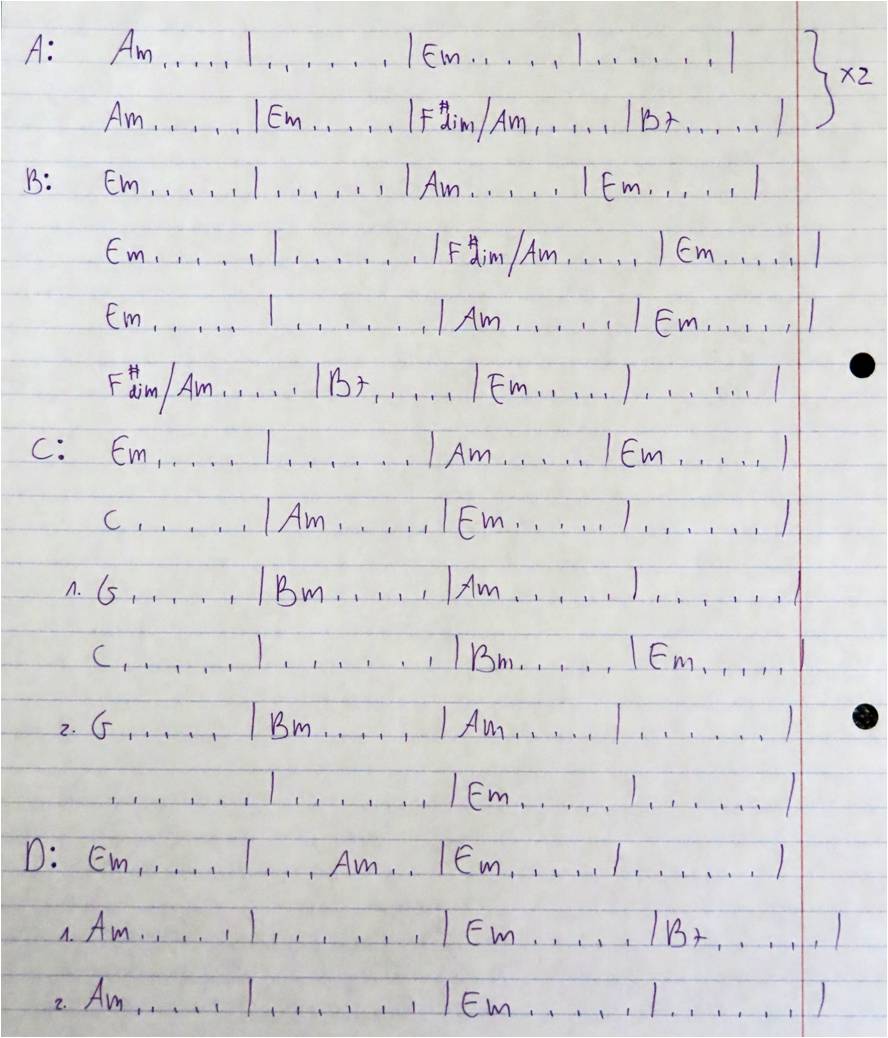 A: Am , , , , , | , , , , , , | Em . . , , , | , , , , , , | } x2
Am , , , , , | Em , , , , , | F#dim/Am , , , , , | B7 , , , , , |
B: Em , , , , , | , , , , , , | Am , , , , , | Em , , , , , |
Em , , , , , | , , , , , , | F#dim/Am , , , , , | Em , , , , , |
Em , , , , , | , , , , , , | Am , , , , , | Em , , , , , |
F#dim/Am , , , , , | B7 , , , , , | Em , , , , , | , , , , , , |
C: Em , , , , , | , , , , , , | Am , , , , , | Em , , , , , |
C , , , , , | Am , , , , , | Em , , , , , | , , , , , , |
1. G , , , , , | Bm , , , , , | Am , , , , , | , , , , , , |
C , , , , , | , , , , , , | Bm , , , , , | Em , , , , , |
2. G , , , , , | Bm , , , , , | Am , , , , , | , , , , , , |
, , , , , , | , , , , , , | Em , , , , , | , , , , , , |
D: Em , , , , , | , , , Am , , | Em , , , , , | , , , , , , |
1. Am , , , , , | , , , , , , | Em , , , , , | B7 , , , , , |
2. Am , , , , , | , , , , , , | Em , , , , , | , , , , , , |